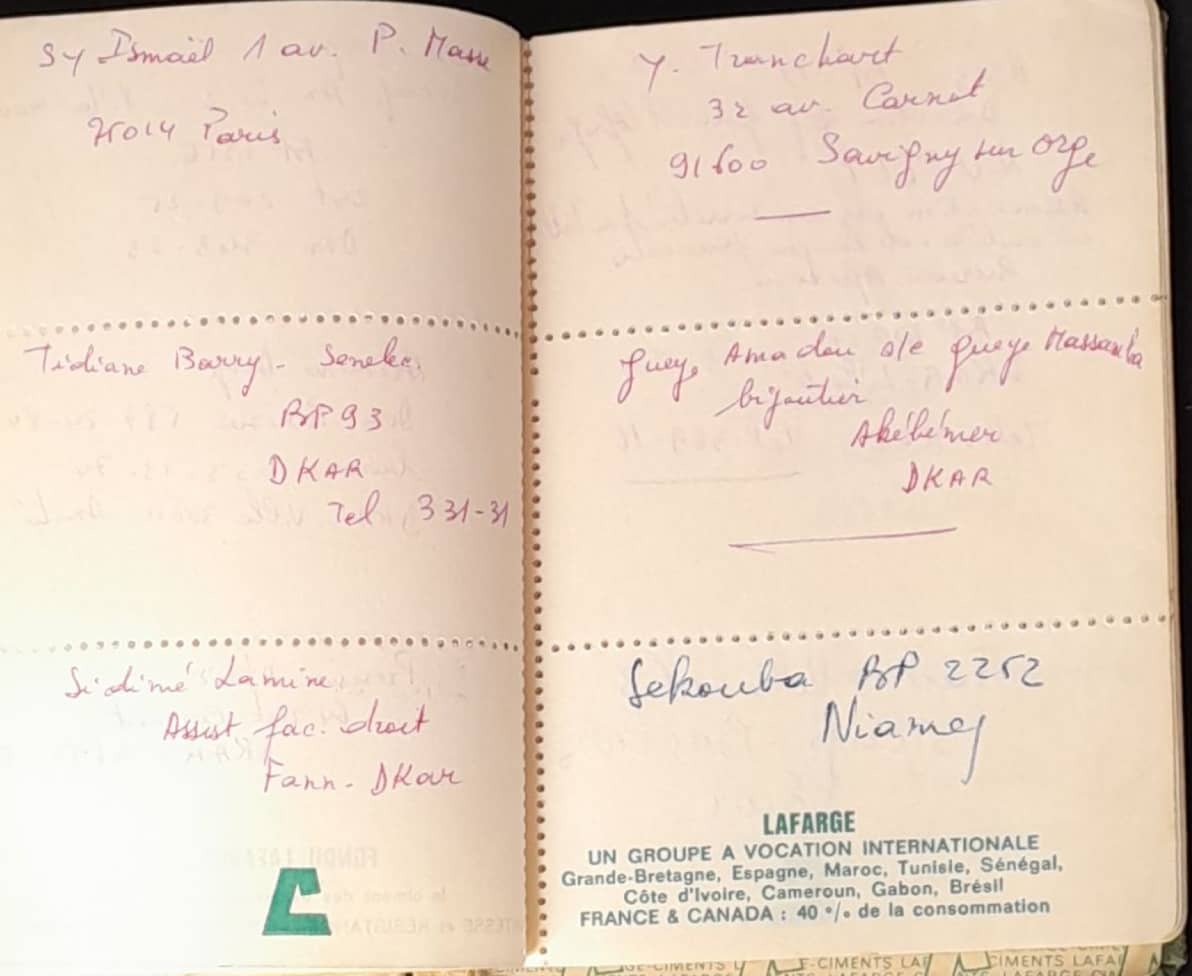 Sy Ismaël 1 av. P. Masse
75014 Paris
Tidiane Barry - Senelec
BP 93
DKAR
Tel 331-31
Sidimé Lamine
Assist fac. droit
Fann - DKar
Y. Tranchart
32 av. Carnot
91600 Savigny sur Orge
Gueye Amadou s/c Gueye Massamba
bijoutier
Akébémer
DKAR
Sekouba BP 2252
Niamey
LAFARGE
UN GROUPE A VOCATION INTERNATIONALE
Grande-Bretagne, Espagne, Maroc, Tunisie, Sénégal,
Côte d'Ivoire, Cameroun, Gabon, Brésil
FRANCE & CANADA : 40 % de la consommation